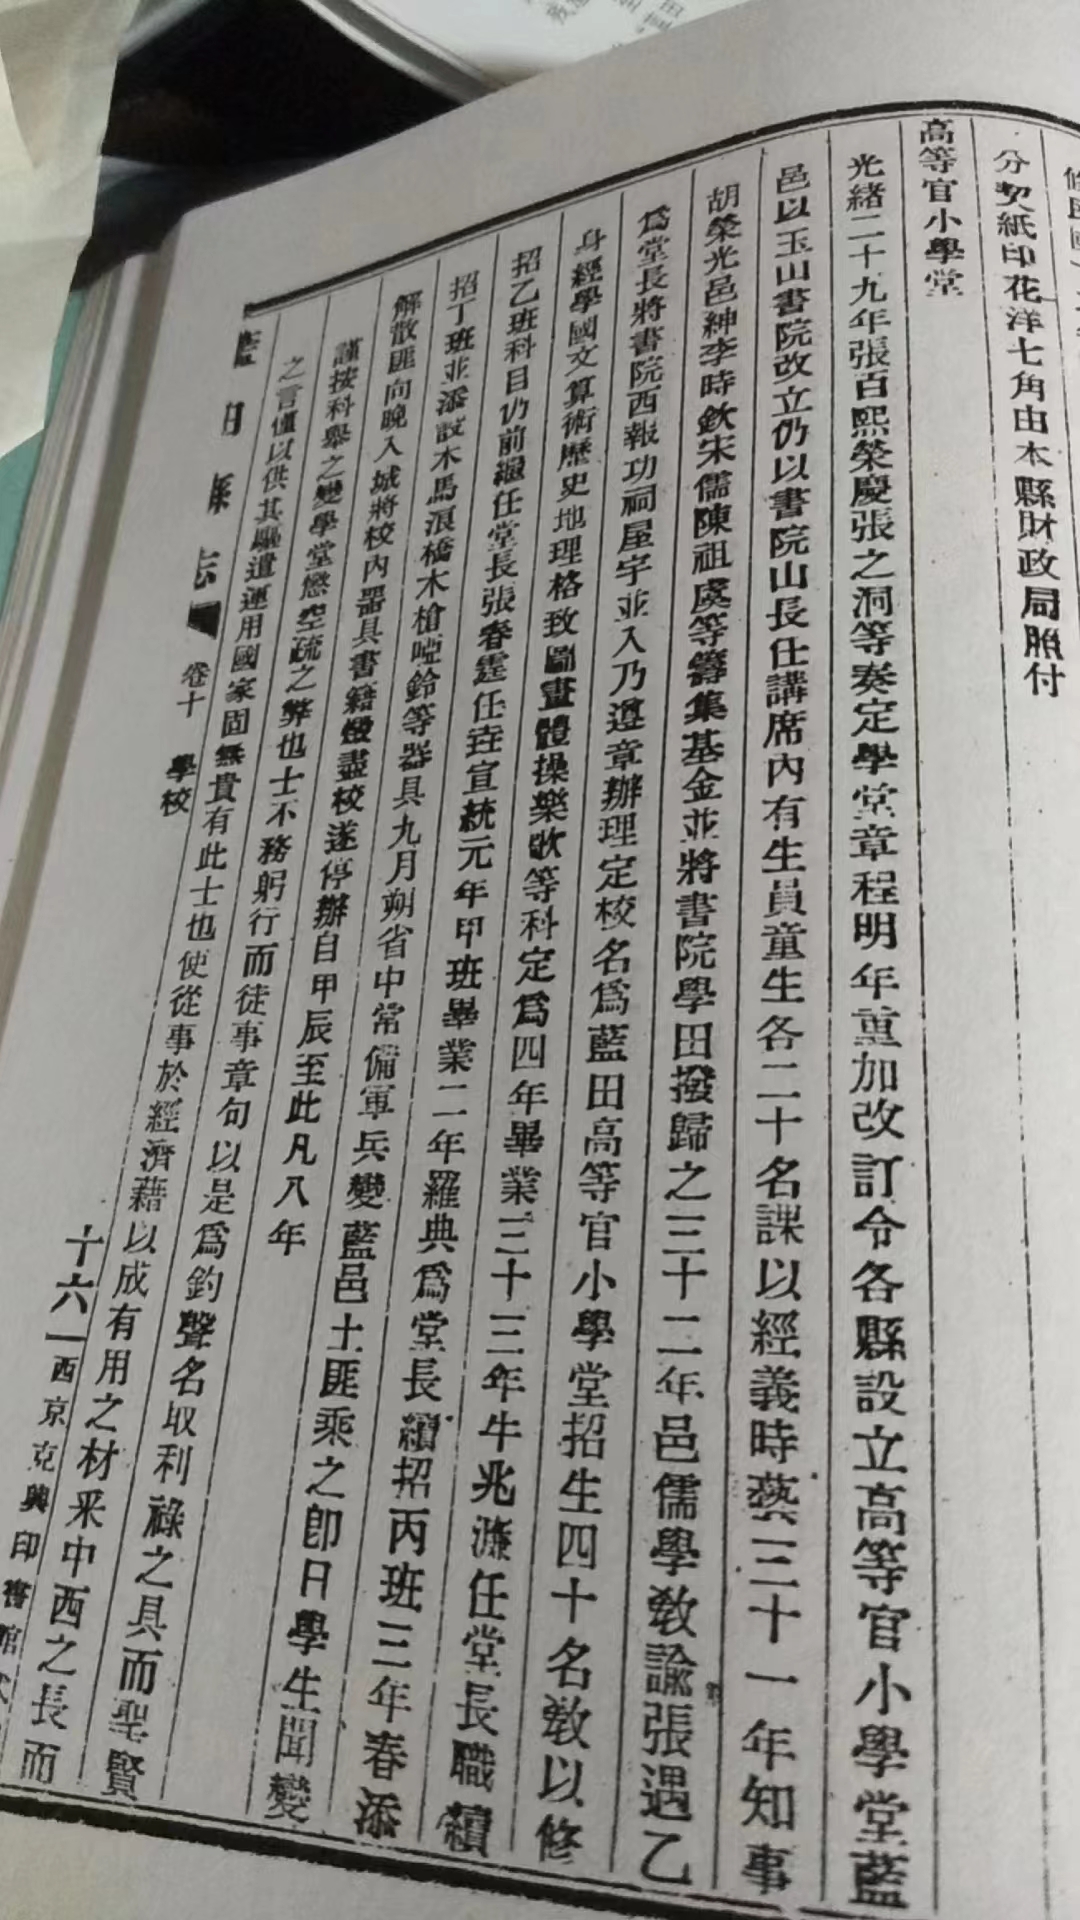 分契紙印花洋七角由本縣財政局照付
高等官小學堂
光緒二十九年張百熙榮慶張之洞等奏定學堂章程明年重加改訂令各縣設立高等官小學堂藍
邑以玉山書院改立仍以書院山長任講席內有生員童生各二十名課以經義時藝三十一年知事
胡榮光邑紳李時欽宋儒陳祖虞等籌集基金並將書院學田撥歸之三十二年邑儒學教諭張遇乙
爲堂長將書院西報功祠屋宇並入乃遵章辦理定校名爲藍田高等官小學堂招生四十名教以修
身經學國文算術歷史地理格致圖畫體操樂歌等科定爲四年畢業三十三年牛兆濂任堂長職續
招乙班科目仍前繼任堂長張春霆任垚宣統元年甲班畢業二年羅典爲堂長續招丙班三年春添
招丁班並添設木馬浪橋木槍啞鈴等器具九月朔省中常備軍兵變藍邑土匪乘之即日學生聞變
解散匪向晚入城將校內器具書籍燬盡校遂停辦自甲辰至此凡八年
謹按科舉之變學堂懲空疏之弊也士不務躬行而徒事章句以是爲釣聲名取利祿之具而聖賢
之言僅以供其驅遣運用國家固無貴有此士也使從事於經濟藉以成有用之材采中西之長而
縣志 卷十 學校 十六 西京克興印書館